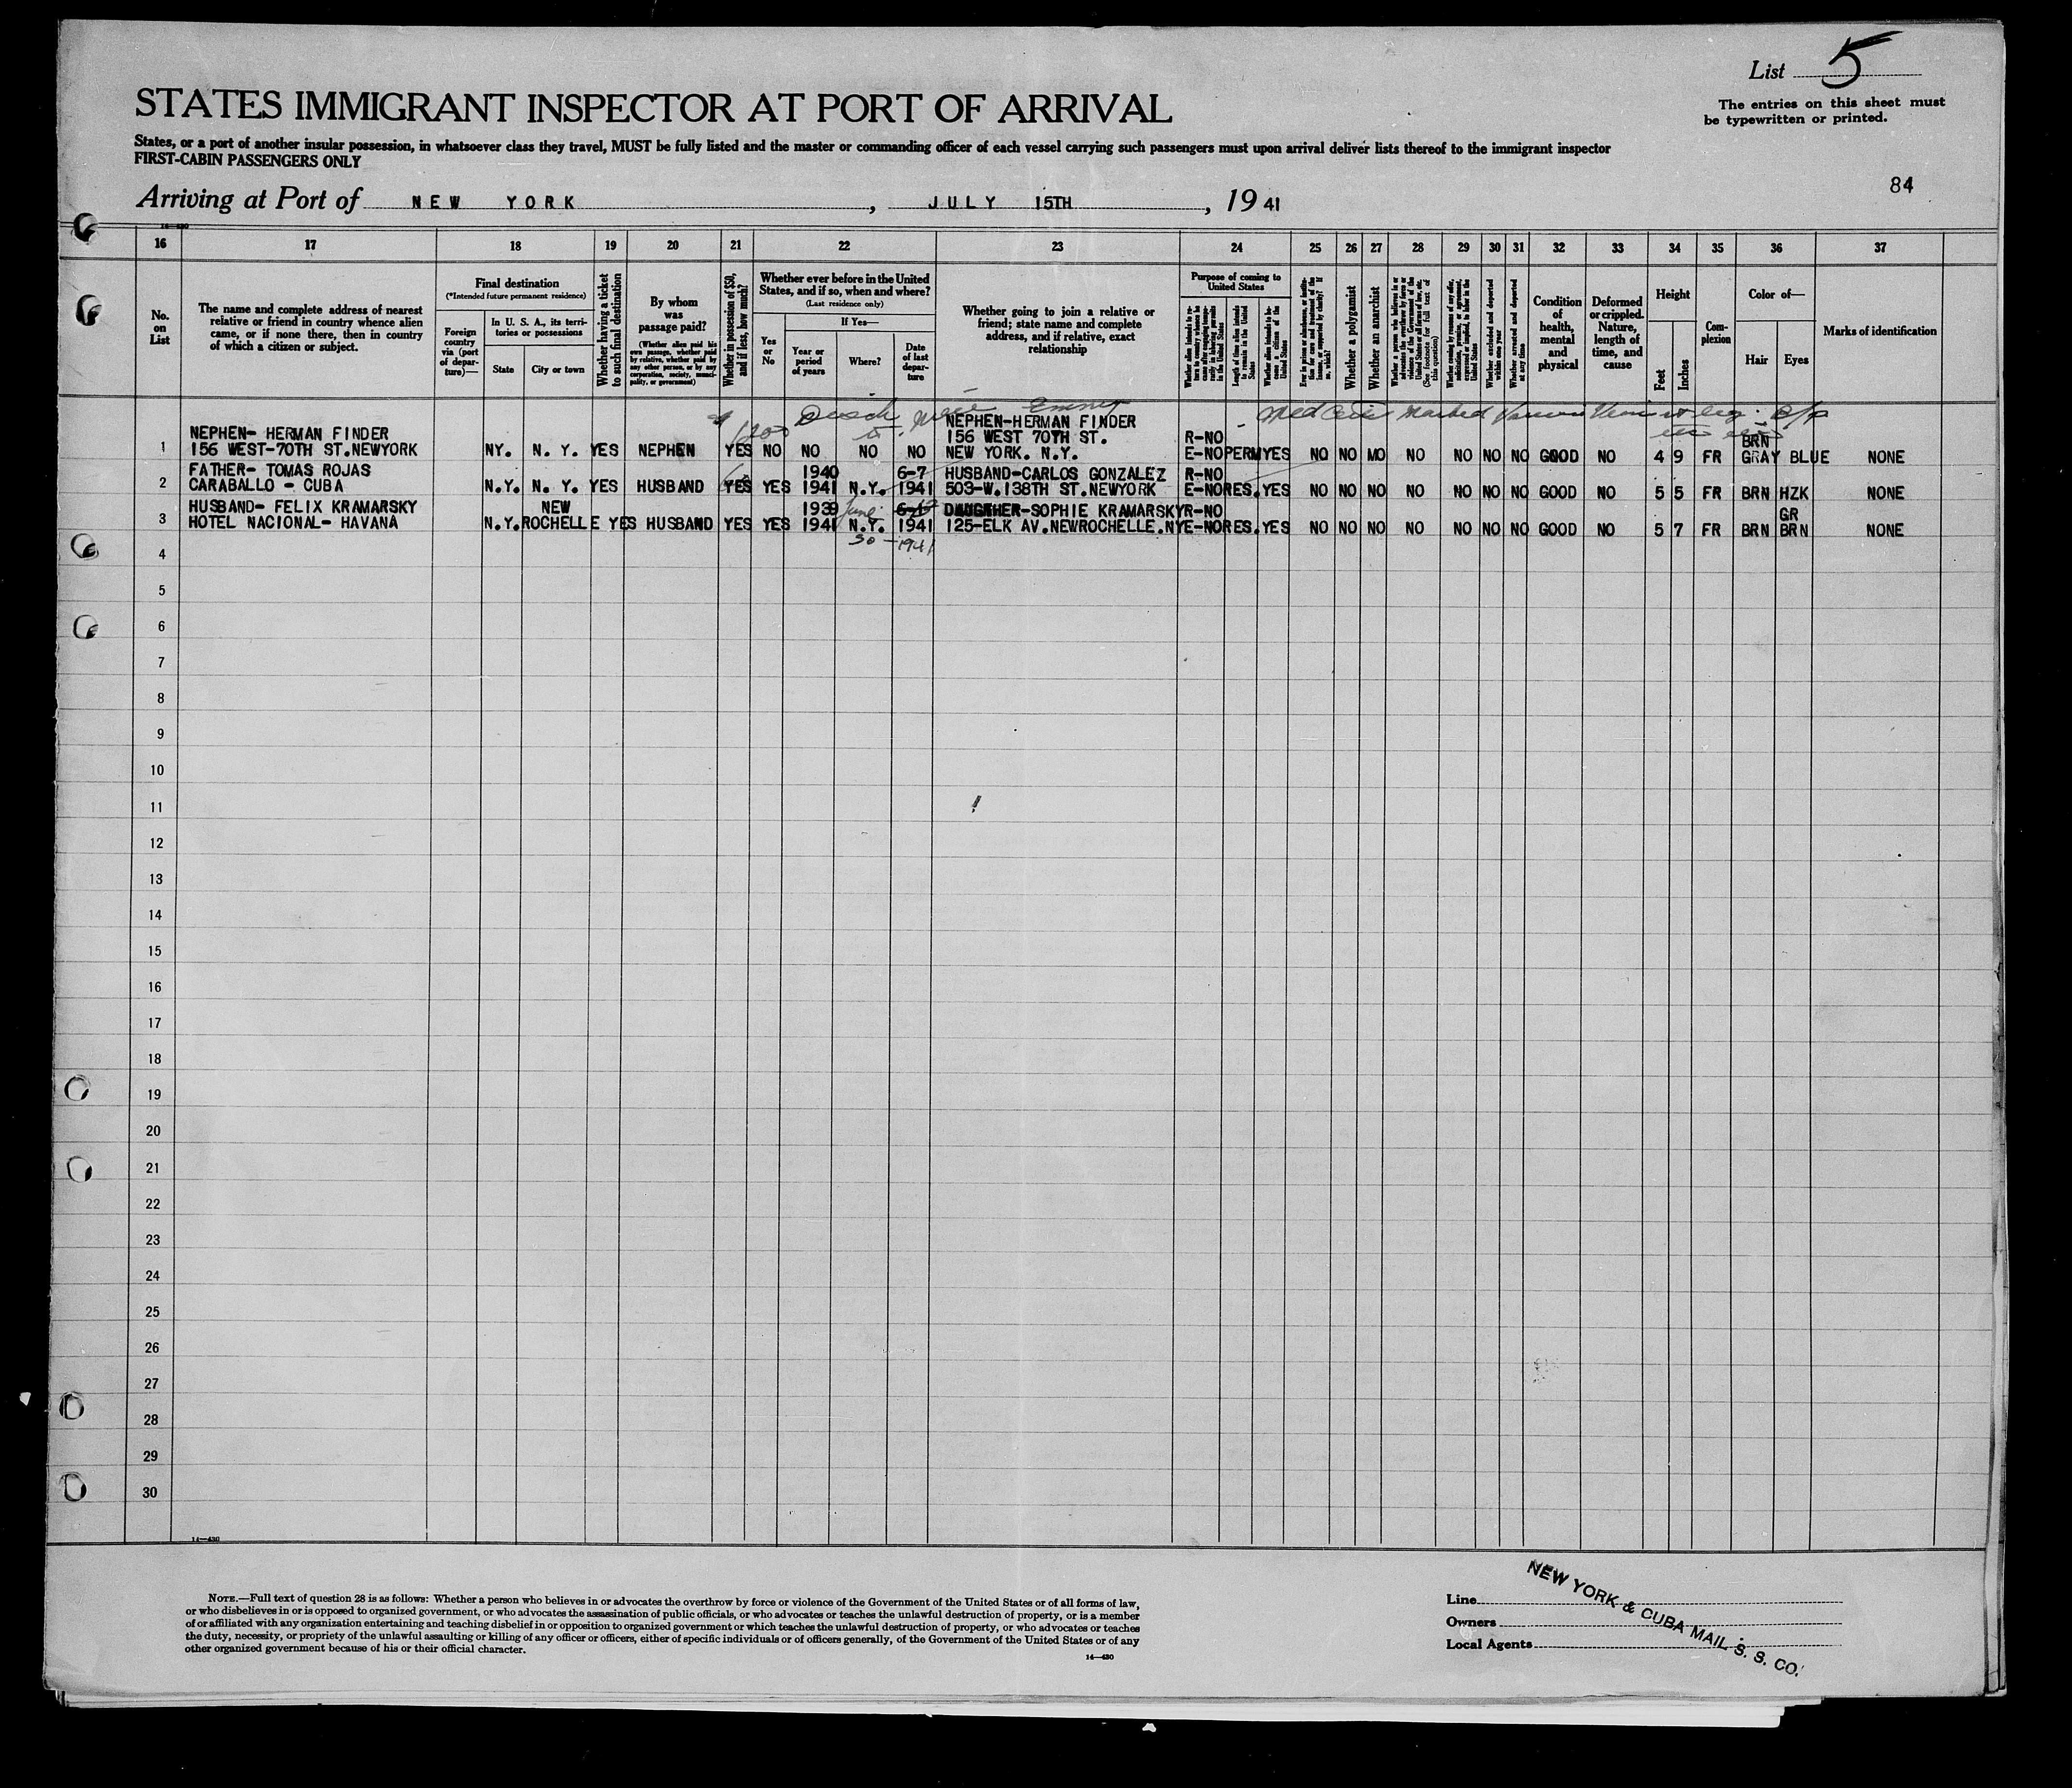 List 5
The entries on this sheet must
be typewritten or printed.
STATES IMMIGRANT INSPECTOR AT PORT OF ARRIVAL
States, or a port of another insular possession, in whatsoever class they travel, MUST be fully listed and the master or commanding officer of each vessel carrying such passengers must upon arrival deliver lists thereof to the immigrant inspector
FIRST-CABIN PASSENGERS ONLY
84
Arriving at Port of NEW YORK, JULY 15TH, 19 41
14—430
16 17 18 19 20 21 22 23 24 25 26 27 28 29 30 31 32 33 34 35 36 37
No.
on
List
The name and complete address of nearest
relative or friend in country whence alien
came, or if none there, then in country
of which a citizen or subject.
Final destination
(*Intended future permanent residence)
Foreign
country
via (port
of depar-
ture)—
In U. S. A., its terri-
tories or possessions
State
City or town
Whether having a ticket
to such final destination
By whom
was
passage paid?
(Whether alien paid his
own passage, whether paid
by relative, whether paid by
any other person, or by any
corporation, society, munici-
pality, or government)
Whether in possession of $50,
and if less, how much?
Whether ever before in the United
States, and if so, when and where?
(Last residence only)
Yes
or
No
If Yes—
Year or
period
of years
Where?
Date
of last
depar-
ture
Whether going to join a relative or
friend; state name and complete
address, and if relative, exact
relationship
Purpose of coming to
United States
Whether alien intends to re-
turn to country whence he
came after engaging tempo-
rarily in laboring pursuits
in the United States
Length of time alien intends
to remain in the United
States
Whether alien intends to be-
come a citizen of the
United States
Ever in prison or almshouse, or institu-
tion for care and treatment of the
insane, or supported by charity? If
so, which?
Whether a polygamist
Whether an anarchist
Whether a person who believes in or
advocates the overthrow by force or
violence of the Government of the
United States or all forms of law, etc.
(See footnote for full text of
this question)
Whether coming by reason of any offer,
solicitation, promise, or agreement,
expressed or implied, to labor in the
United States
Whether excluded and deported
within one year
Whether arrested and deported
at any time
Condition
of
health,
mental
and
physical
Deformed
or crippled.
Nature,
length of
time, and
cause
Height
Feet
Inches
Com-
plexion
Color of—
Hair
Eyes
Marks of identification
NEPHEN- HERMAN FINDER NEPHEN-HERMAN FINDER
156 WEST 70TH ST. R-NO BRN
1 156 WEST-70TH ST.NEWYORK NY. N. Y. YES NEPHEN YES NO NO NO NO NEW YORK. N.Y. E-NO PERM YES NO NO MO NO NO NO NO GOOD NO 4 9 FR GRAY BLUE NONE
FATHER- TOMAS ROJAS 1940 6-7 HUSBAND-CARLOS GONZALEZ R-NO
2 CARABALLO - CUBA N.Y. N. Y. YES HUSBAND YES YES 1941 N.Y. 1941 503-W.138TH ST.NEWYORK E-NO RES. YES NO NO NO NO NO NO NO GOOD NO 5 5 FR BRN HZK NONE
HUSBAND- FELIX KRAMARSKY NEW 1939 June DAUGTHER-SOPHIE KRAMARSKY R-NO GR
3 HOTEL NACIONAL- HAVANA N.Y. ROCHELLE YES HUSBAND YES YES 1941 N.Y. 1941 125-ELK AV.NEWROCHELLE.NY E-NO RES. YES NO NO NO NO NO NO NO GOOD NO 5 7 FR BRN BRN NONE
30 - 1941
4
5
6
7
8
9
10
11
12
13
14
15
16
17
18
19
20
21
22
23
24
25
26
27
28
29
30
14—430
NOTE.—Full text of question 28 is as follows: Whether a person who believes in or advocates the overthrow by force or violence of the Government of the United States or of all forms of law,
or who disbelieves in or is opposed to organized government, or who advocates the assassination of public officials, or who advocates or teaches the unlawful destruction of property, or is a member
of or affiliated with any organization entertaining and teaching disbelief in or opposition to organized government or which teaches the unlawful destruction of property, or who advocates or teaches
the duty, necessity, or propriety of the unlawful assaulting or killing of any officer or officers, either of specific individuals or of officers generally, of the Government of the United States or of any
other organized government because of his or their official character.
14—430
Line
Owners
Local Agents
NEW YORK & CUBA MAIL S. S. CO.